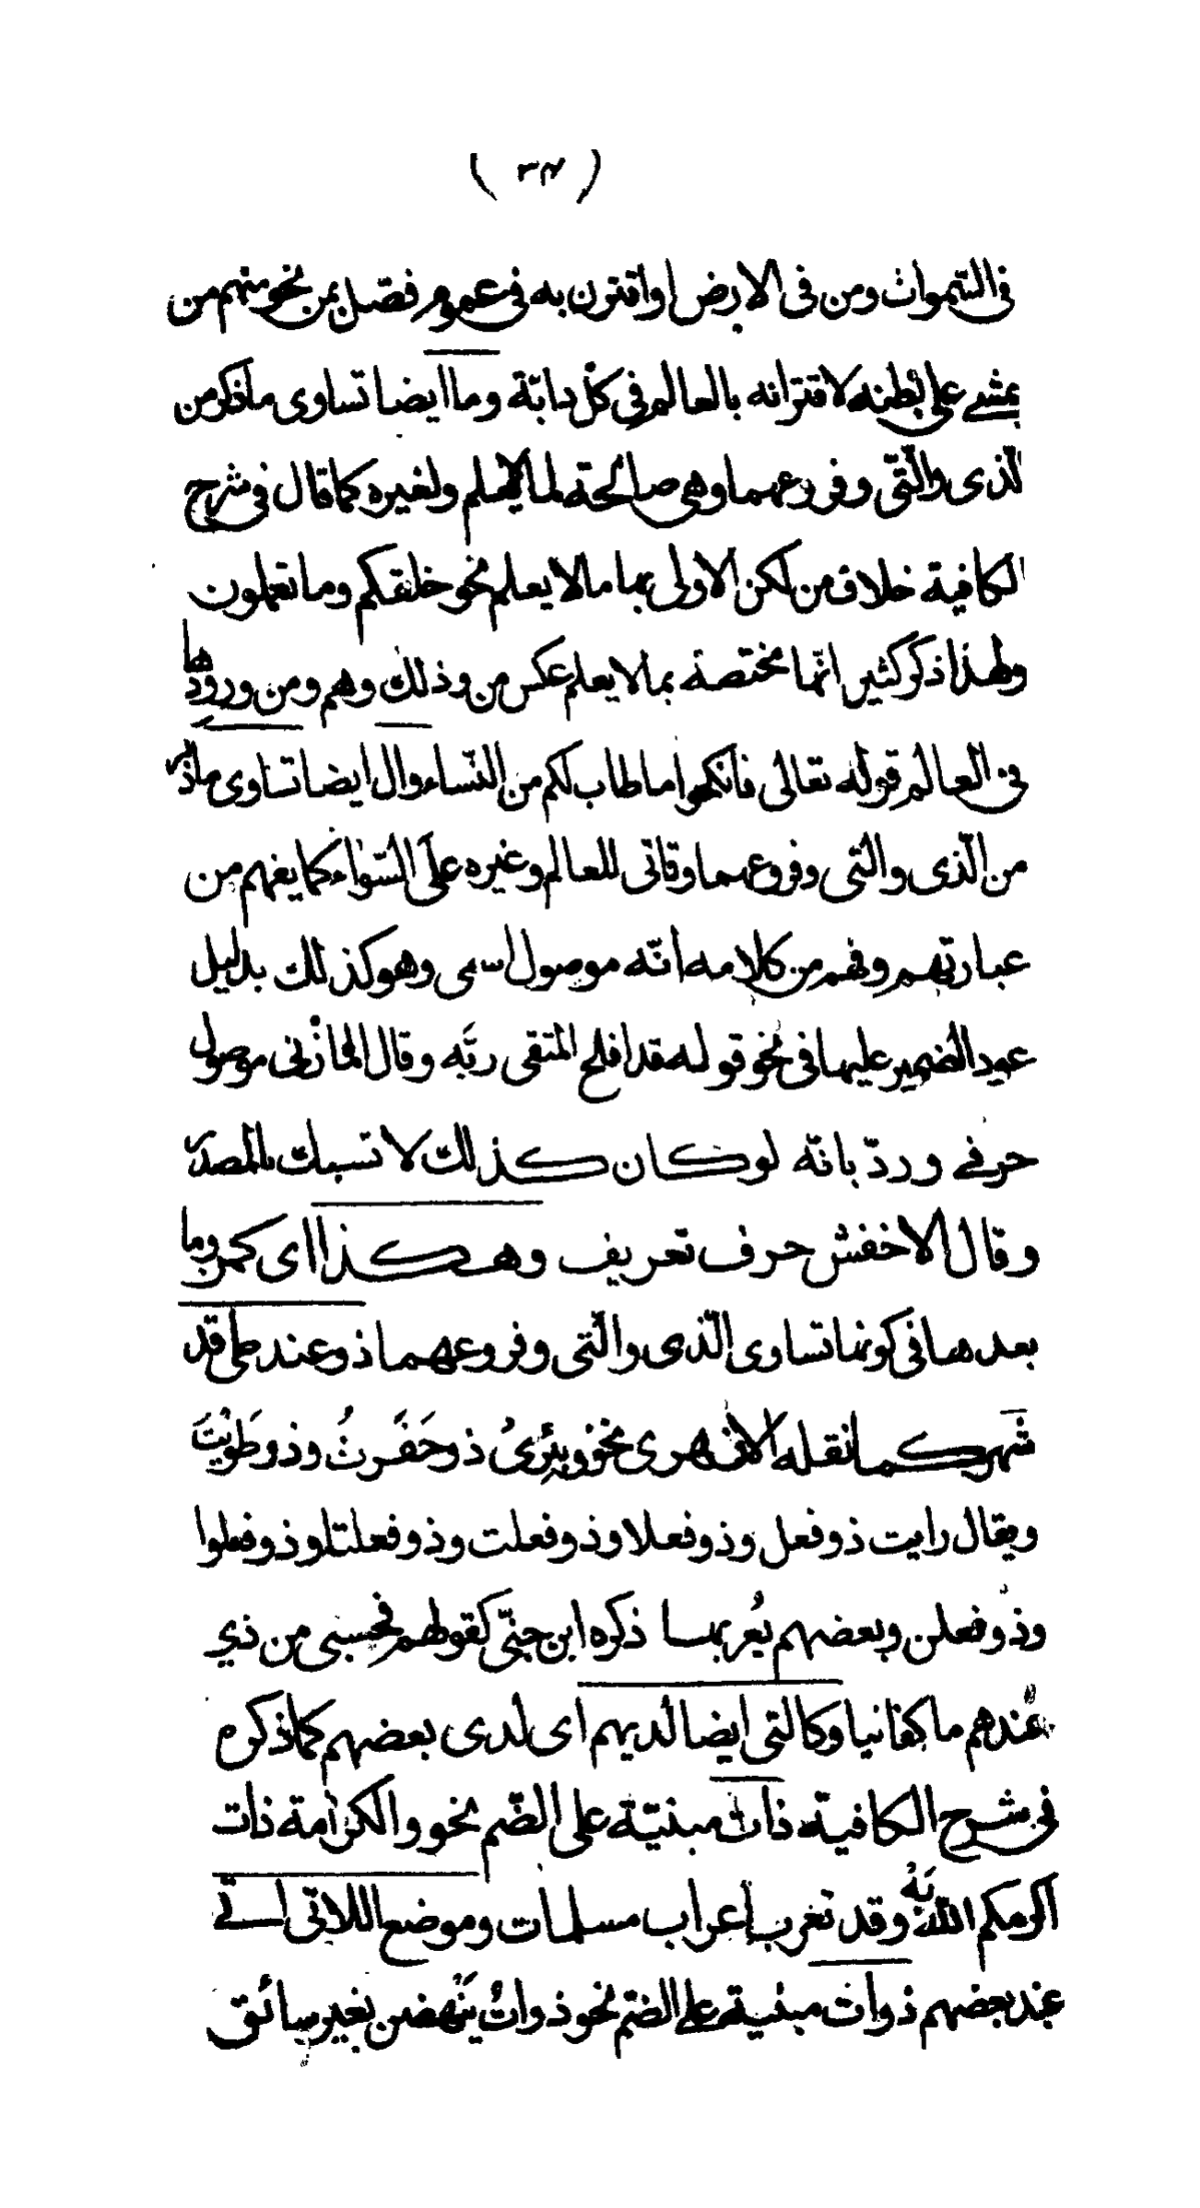 ( ٣٤ )
فى السّموات ومن فى الارض او اقترن به فى عموم فصّل بمن نحو منهم من
يمشى على بطنه لاقترانه بالعالم فى كلّ دابّة وما ايضا تساوى ما ذكر من
الّذى والّتى وفروعهما وهى صالحة لما لا يعلم ولغيره كما قال فى شرح
الكافية خلاف من لكن الاولى بها ما لا يعلم نحو خلقكم وما تعملون
ولهذا ذكر كثير انّها مختصة بما لا يعلم عكس من وذلك وهم ومن ورودها
فى العالم قوله تعالى فانكحوا ما طاب لكم من النّساء وال ايضا تساوى ما ذكر
من الّذى والّتى وفروعهما وتاتى للعالم وغيره على السّواء كما يفهم من
عبارتهم وفهم من كلامه انّه موصول اسمى وهو كذلك بدليل
عود الضمير عليها فى نحو قوله قد افلح المتقى ربّه وقال المازنى موصول
حرفى وردّ بانّه لو كان كذلك لا تسبك بالمصدر
وقال الاخفش حرف تعريف وهكذا اى كمن وما
بعدها فى كونها تساوى الّذى والّتى وفروعهما ذو عند طى قد
شهر كما نقله الازهرى نحو وبئرى ذو حَفَرتُ وذو طَوَيْتَ
ويقال رايت ذو فعل وذو فعلا وذو فعلت وذو فعلتا وذو فعلوا
وذو فعلن وبعضهم يُعربها ذكره ابن جنّى كقولهم فحسبى من ذي
عندهم ما كفانيا وكالتى ايضا لديهم اى لدى بعضهم كما ذكره
فى شرح الكافيّه ذات مبنيّة على الضّم نحو والكرامة ذات
اكرمكم اللّه بَهْ وقد تعرب اعراب مسلمات وموضع اللاتى اتى
عند بعضهم ذوات مبنية على الضمّ نحو ذواتُ يَنْهضن بغير سائق